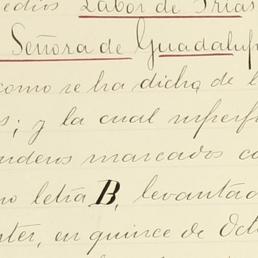 edios Labor de Trias
Señora de Guadalup
como se ha dicho de l
s; y la cual superfi
ndens marcados co
no letra B, levantad
ter, en quince de Oct